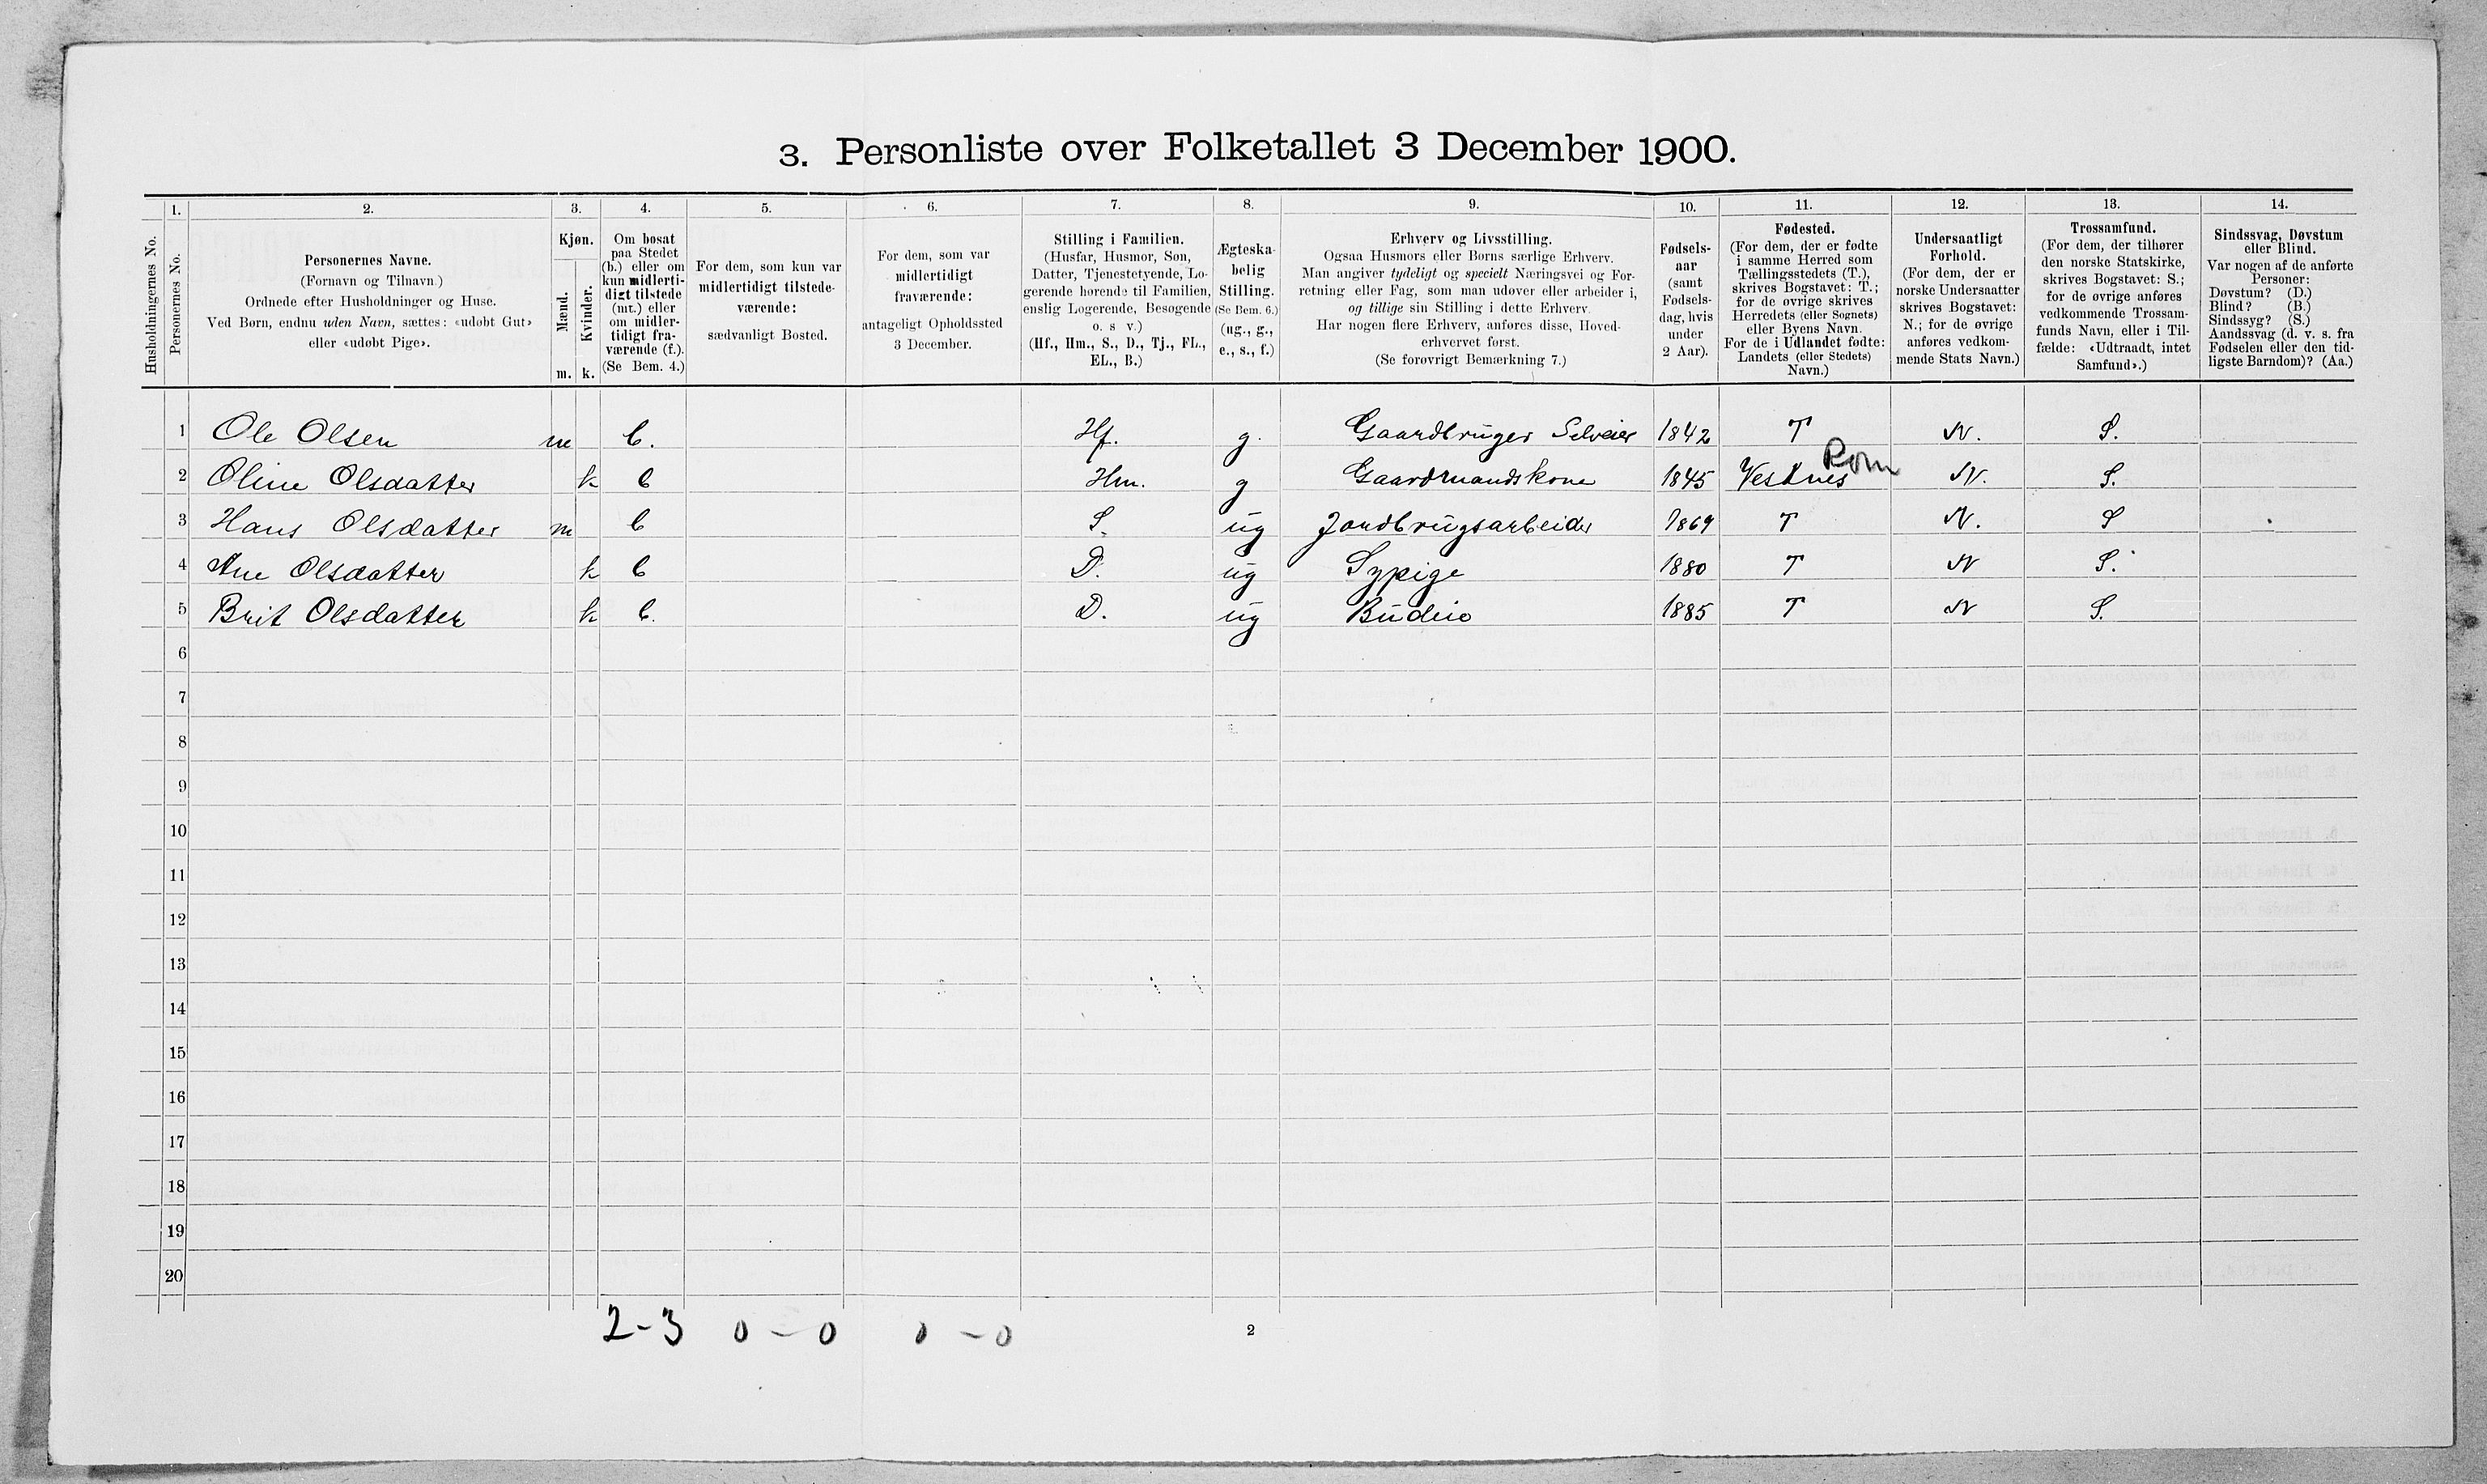 3. Personliste over Folketallet 3 December 1900.
1. 2. 3. 4. 5. 6. 7. 8. 9. 10. 11. 12. 13. 14.
Husholdningernes No.
Personernes No.
Personernes Navne.
(Fornavn og Tilnavn.)
Ordnede efter Husholdninger og Huse.
Ved Børn, endnu uden Navn, sættes: «udøbt Gut»
eller «udøbt Pige».
Kjøn.
Mænd.
Kvinder.
m. k.
Om bosat
paa Stedet
(b.) eller om
kun midlerti-
digt tilstede
(mt.) eller
om midler-
tidigt fra-
værende (f.).
(Se Bem. 4.)
For dem, som kun var
midlertidigt tilstede-
værende:
sædvanligt Bosted.
For dem, som var
midlertidigt
fraværende:
antageligt Opholdssted
3 December.
Stilling i Familien.
(Husfar, Husmor, Søn,
Datter, Tjenestetyende, Lo-
gerende hørende til Familien,
enslig Logerende, Besøgende
o. s v.)
(Hf., Hm., S., D., Tj., FL.,
EL., B.)
Ægteska-
belig
Stilling.
(Se Bem. 6.)
(ug., g.,
e., s., f.)
Erhverv og Livsstilling.
Ogsaa Husmors eller Børns særlige Erhverv.
Man angiver tydeligt og specielt Næringsvei og For-
retning eller Fag, som man udøver eller arbeider i,
og tillige sin Stilling i dette Erhverv.
Har nogen flere Erhverv, anføres disse, Hoved-
erhvervet først.
(Se forøvrigt Bemærkning 7.)
Fødsels-
aar
(samt
Fødsels-
dag, hvis
under
2 Aar).
Fødested.
(For dem, der er fødte
i samme Herred som
Tællingsstedets (T.),
skrives Bogstavet: T.;
for de øvrige skrives
Herredets (eller Sognets)
eller Byens Navn.
For de i Udlandet fødte:
Landets (eller Stedets)
Navn.)
Undersaatligt
Forhold.
(For dem, der er
norske Undersaatter
skrives Bogstavet:
N.; for de øvrige
anføres vedkom-
mende Stats Navn.)
Trossamfund.
(For dem, der tilhører
den norske Statskirke,
skrives Bogstavet: S.;
for de øvrige anføres
vedkommende Trossam-
funds Navn, eller i Til-
fælde: «Udtraadt, intet
Samfund».)
Sindssvag, Døvstum
eller Blind.
Var nogen af de anførte
Personer:
Døvstum? (D.)
Blind? (B.)
Sindssyg? (S.)
Aandssvag (d. v. s. fra
Fødselen eller den tid-
ligste Barndom)? (Aa.)
1 Ole Olsen m b. Hf. g. Gaardbruger Selveier 1842 T N. S.
Rom
2 Oline Olsdatter k b Hm. g Gaardmandskone 1845 Vestnes N. S.
3 Hans Olsdatter m b S. ug Jordbrugsarbeider 1869 T N. S
4 Ane Olsdatter k b D. ug Sypige 1880 T N S.
5 Brit Olsdatter k b. D. ug Budeie 1885 T N S.
6
7
8
9
10
11
12
13
14
15
16
17
18
19
20
2-3 0-0 0-0
2